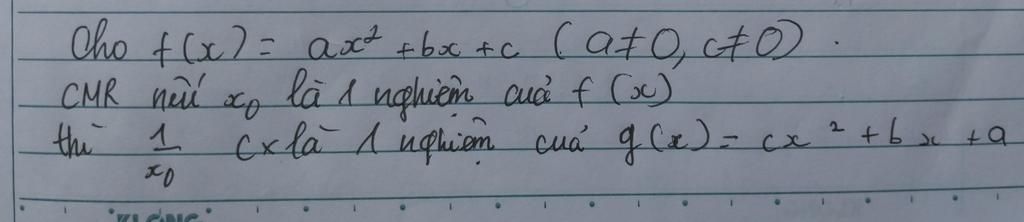 Cho f(x) = ax² + bx + c (a ≠ 0, c ≠ 0).
CMR nếu x₀ là 1 nghiệm cuả f(x)
thì 1/x₀ cx là 1 nghiệm cuả g(x) = cx² + bx + a